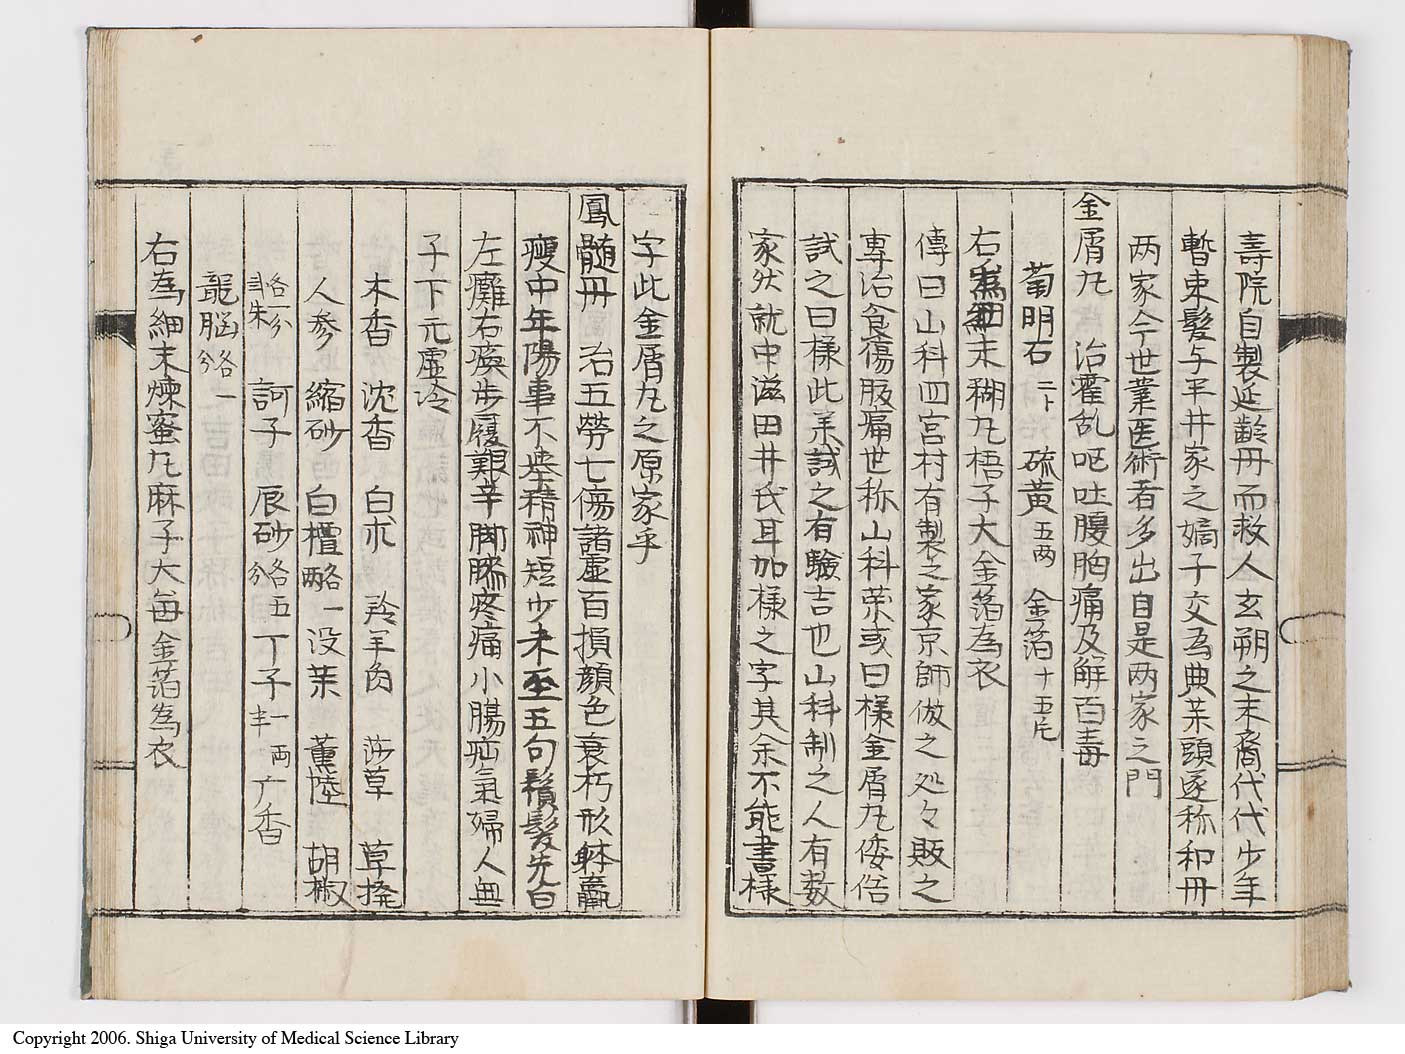 壽院自製延齡丹而救人玄朔之末裔代代少年
暫束髮与平井家之嫡子交為典茱頭逐称和丹
两家今世業医術者多出自是两家之門
金屑丸 治霍乱呕吐腹胸痛及解百毒
菊明石 二卜 硫黄 五两 金箔 十五片
右為細末糊丸梧子大金箔為衣
傳曰山科四宮村有製之家京師倣之処々販之
専治食傷腹痛世称山科茱或曰様金屑丸倭俗
試之曰様此茱試之有驗吉也山科制之人有数
家然就中滋田井氏耳加様之字其余不能書様
字此金屑丸之原家乎
鳳髄丹 治五勞七傷諸虛百損顔色衰朽形躰羸
瘦中年陽事不挙精神短少未至五旬鬚髮先白
左癱右瘓步履艱辛脚膝疼痛小腸疝氣婦人無
子下元虛冷
木香 沈香 白朮 羚羊肉 莎草 草撥
人参 縮砂 白檀 各一两 没茱 薫陸 胡椒
各二分三朱 訶子 辰砂 各五分 丁子 一両半 广香
龍脳 各一分
右為細末煉蜜丸麻子大每金箔為衣
Copyright 2006. Shiga University of Medical Science Library